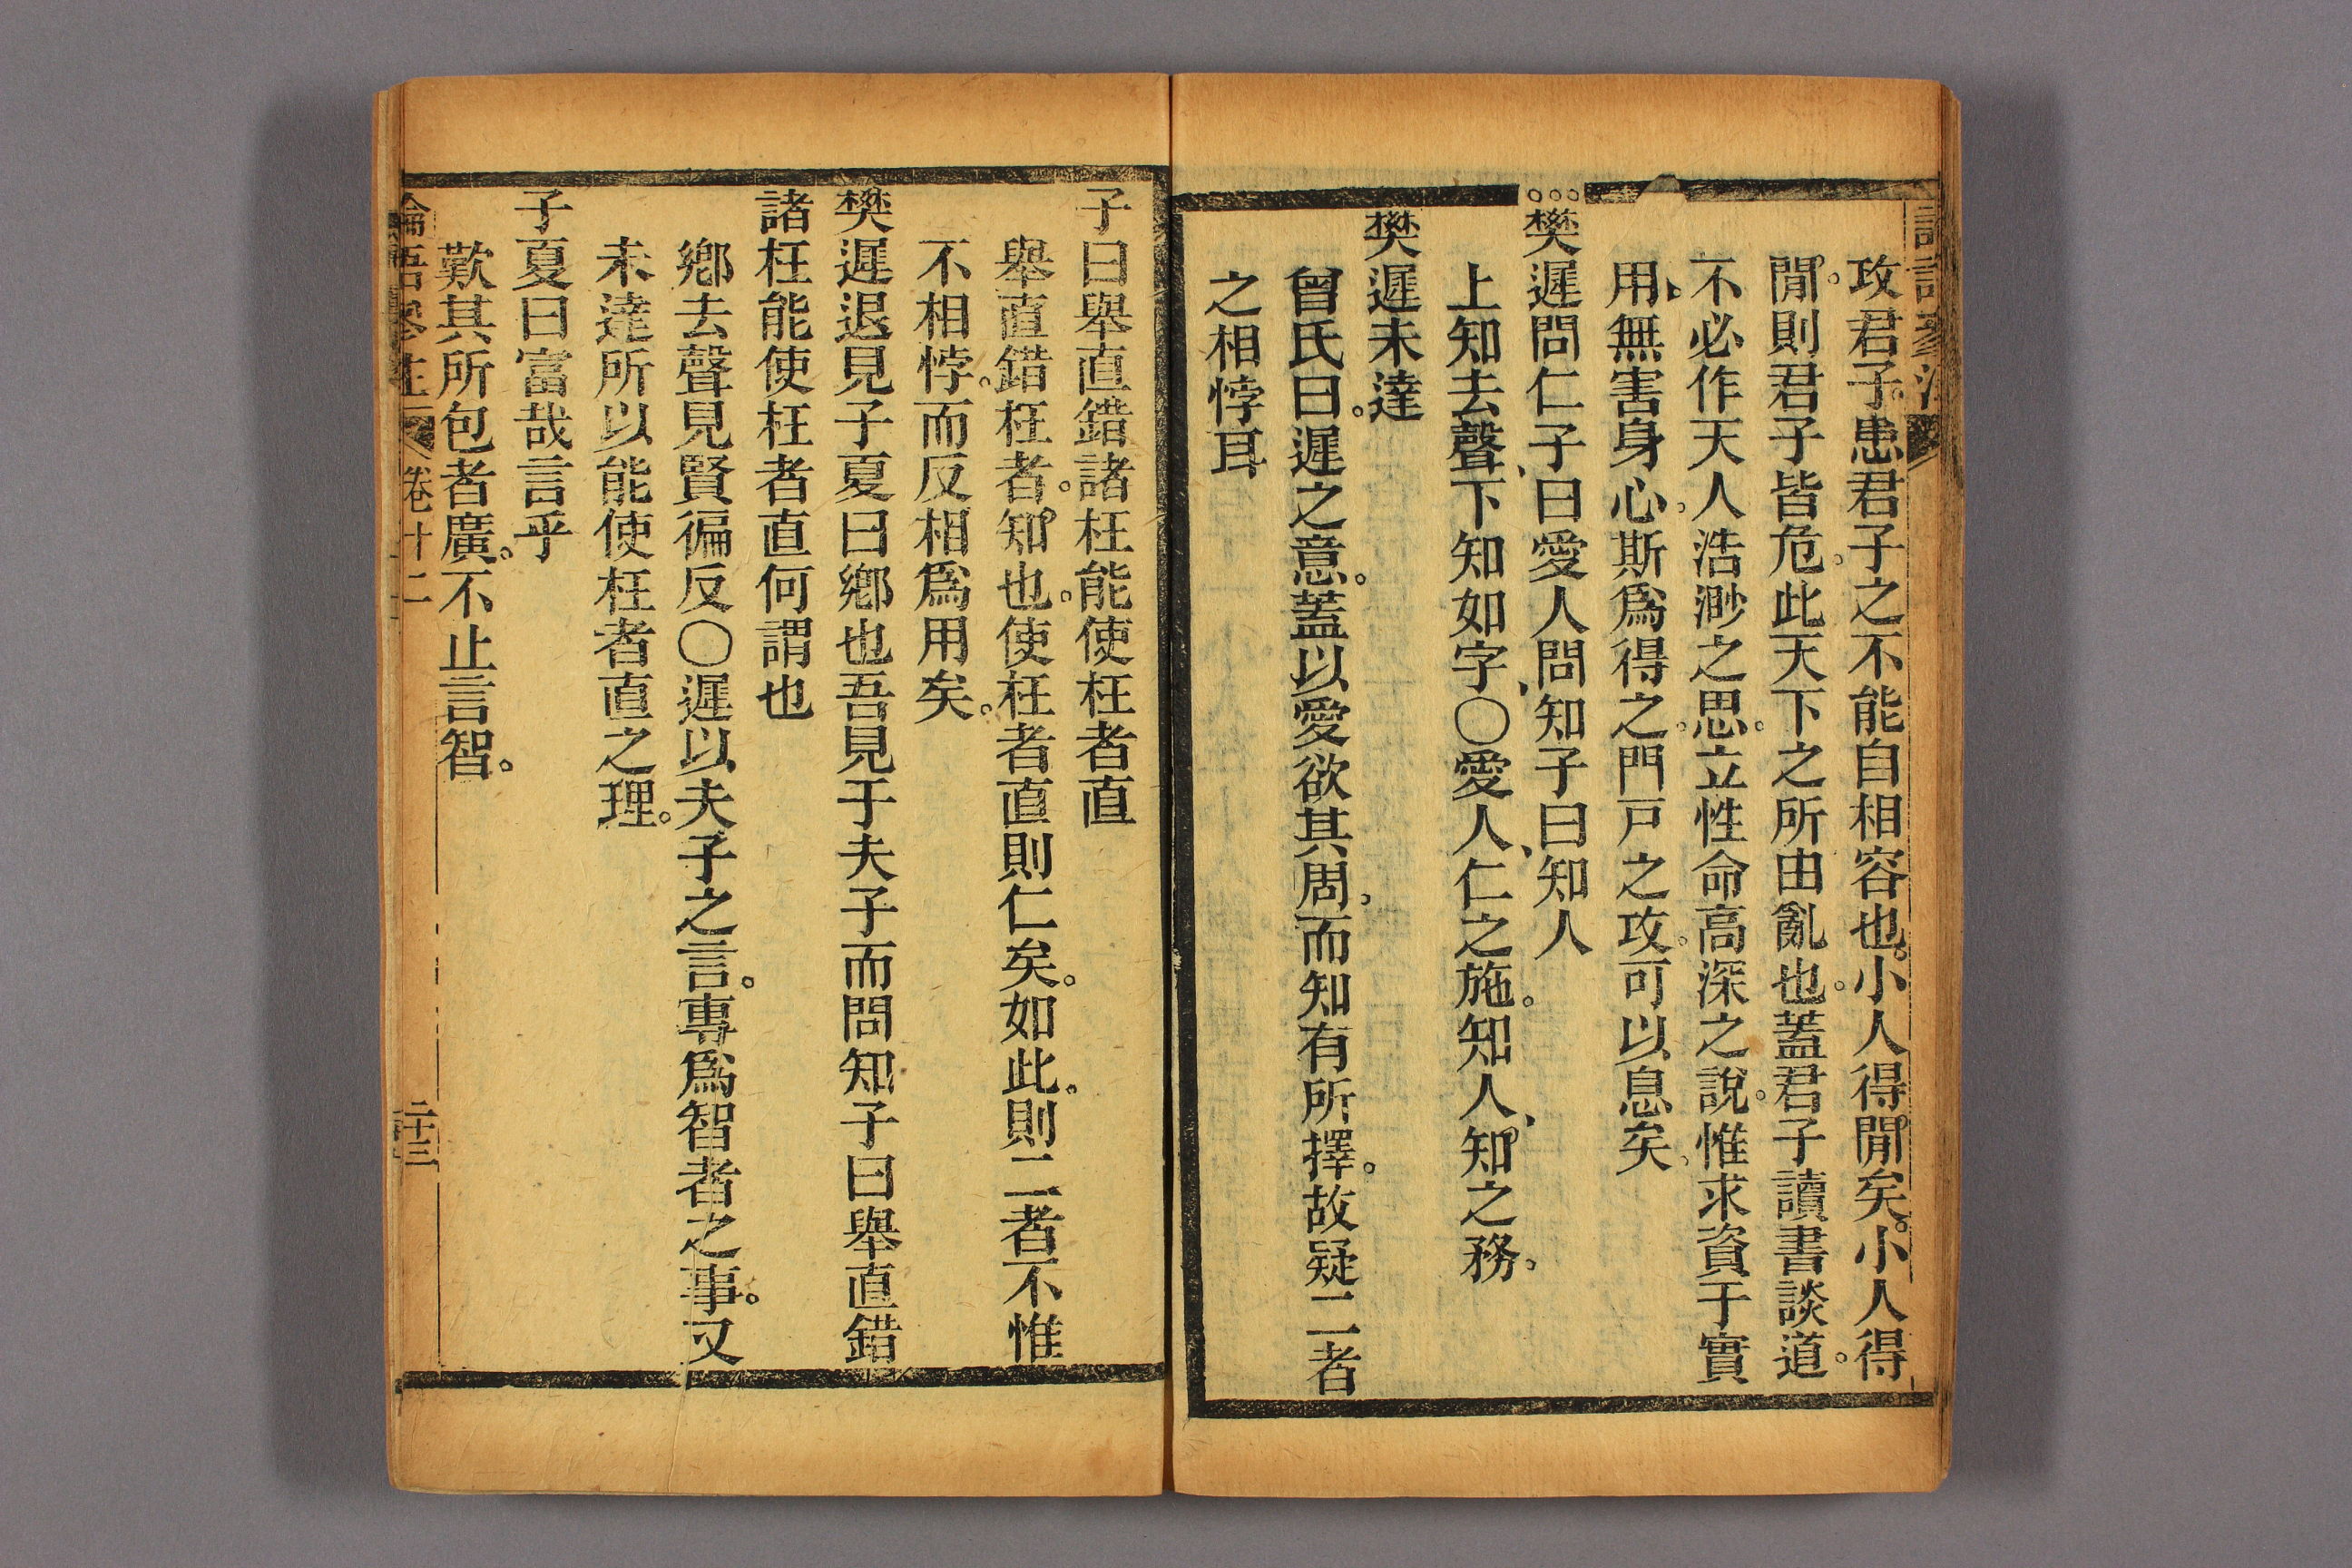 攻君子患君子之不能自相容也。小人得閒矣。小人得
閒。則君子皆危。此天下之所由亂也。蓋君子讀書談道。
不必作天人浩渺之思。立性命高深之說。惟求資于實
用。無害身心。斯爲得之。門戸之攻。可以息矣。
樊遲問仁子曰愛人問知子曰知人
上知去聲、下知如字、〇愛人、仁之施。知人、知之務。
樊遲未達
曾氏曰。遲之意。蓋以愛欲其周。而知有所擇。故疑二者
之相悖耳
子曰舉直錯諸枉能使枉者直
舉直錯枉者。知也。使枉者直則仁矣。如此。則二者不惟
不相悖。而反相爲用矣。
樊遲退見子夏曰鄉也吾見于夫子而問知子曰舉直錯
諸枉能使枉者直何謂也
鄉去聲見賢徧反〇遲以夫子之言。專爲智者之事。又
未達所以能使枉者直之理。
子夏曰富哉言乎
歎其所包者廣。不止言智。
論語參注 卷十二 二十三